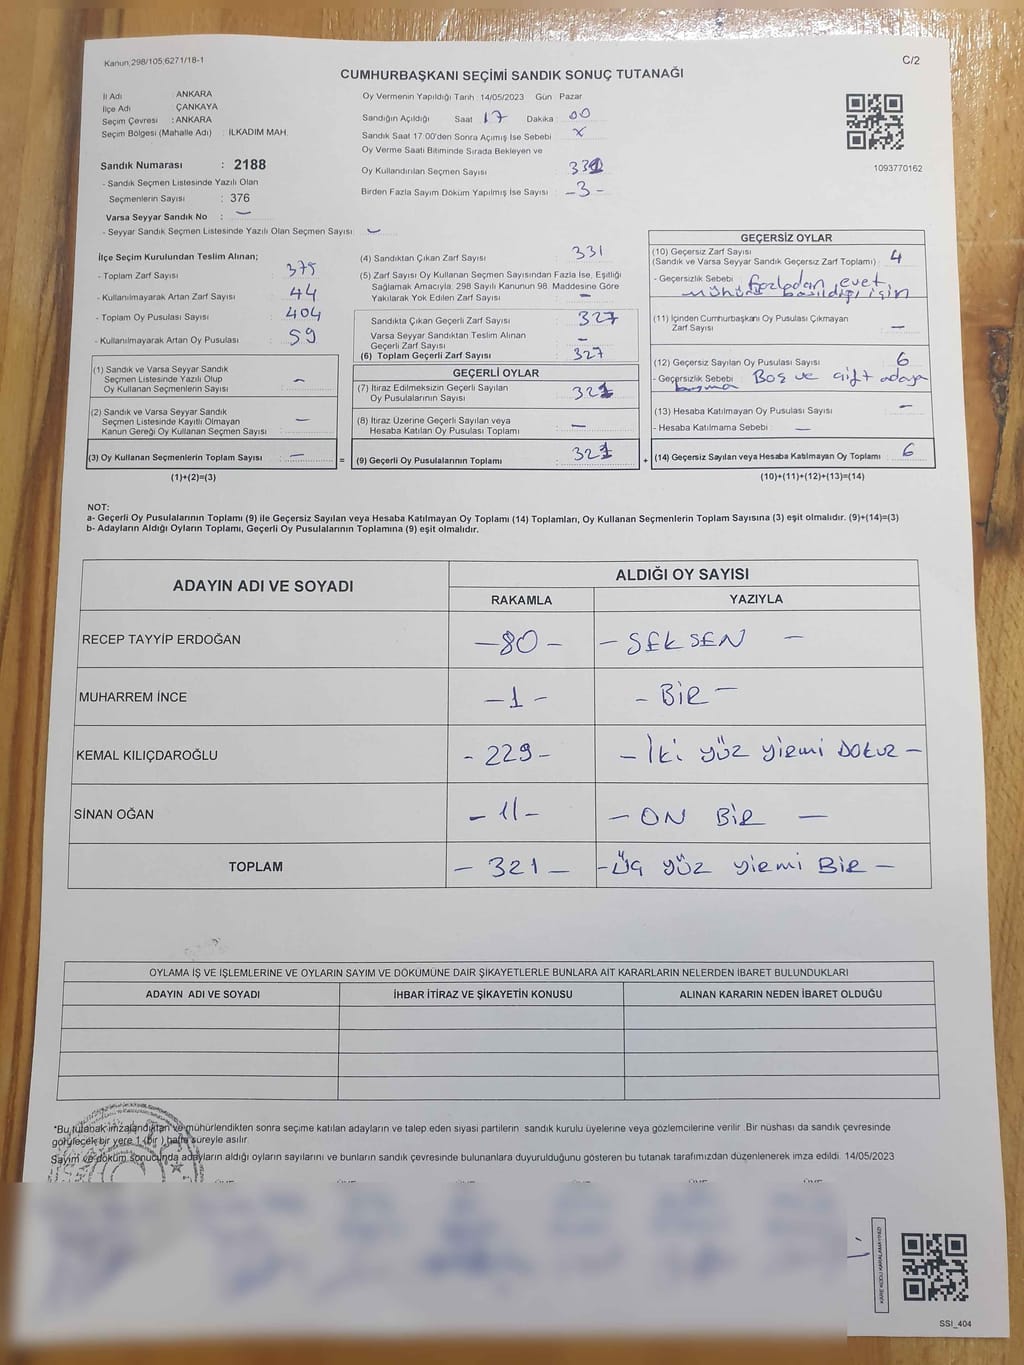 Kanun,298/105;6271/18-1
C/2
CUMHURBAŞKANI SEÇİMİ SANDIK SONUÇ TUTANAĞI
İl Adı : ANKARA
İlçe Adı : ÇANKAYA
Seçim Çevresi : ANKARA
Seçim Bölgesi (Mahalle Adı) : İLKADIM MAH.
Sandık Numarası : 2188
- Sandık Seçmen Listesinde Yazılı Olan
Seçmenlerin Sayısı : 376
Varsa Seyyar Sandık No : –
- Seyyar Sandık Seçmen Listesinde Yazılı Olan Seçmen Sayısı: –
Oy Vermenin Yapıldığı Tarih : 14/05/2023 Gün : Pazar
Sandığın Açıldığı Saat 17 Dakika : 00
Sandık Saat 17.00'den Sonra Açımış İse Sebebi : x
Oy Verme Saati Bitiminde Sırada Bekleyen ve
Oy Kullandırılan Seçmen Sayısı : 331
Birden Fazla Sayım Döküm Yapılmış İse Sayısı : -3-
1093770162
İlçe Seçim Kurulundan Teslim Alınan;
- Toplam Zarf Sayısı : 375
- Kullanılmayarak Artan Zarf Sayısı : 44
- Toplam Oy Pusulası Sayısı : 404
- Kullanılmayarak Artan Oy Pusulası : 59
(1) Sandık ve Varsa Seyyar Sandık
Seçmen Listesinde Yazılı Olup
Oy Kullanan Seçmenlerin Sayısı : –
(2) Sandık ve Varsa Seyyar Sandık
Seçmen Listesinde Kayıtlı Olmayan
Kanun Gereği Oy Kullanan Seçmen Sayısı : –
(3) Oy Kullanan Seçmenlerin Toplam Sayısı : –
(1)+(2)=(3)
=
(4) Sandıktan Çıkan Zarf Sayısı : 331
(5) Zarf Sayısı Oy Kullanan Seçmen Sayısından Fazla İse, Eşitliği
Sağlamak Amacıyla, 298 Sayılı Kanunun 98. Maddesine Göre
Yakılarak Yok Edilen Zarf Sayısı : –
Sandıkta Çıkan Geçerli Zarf Sayısı : 327
Varsa Seyyar Sandıktan Teslim Alınan
Geçerli Zarf Sayısı : –
(6) Toplam Geçerli Zarf Sayısı : 327
GEÇERLİ OYLAR
(7) İtiraz Edilmeksizin Geçerli Sayılan
Oy Pusulalarının Sayısı : 321
(8) İtiraz Üzerine Geçerli Sayılan veya
Hesaba Katılan Oy Pusulası Toplamı : –
(9) Geçerli Oy Pusulalarının Toplamı : 321
+
GEÇERSİZ OYLAR
(10) Geçersiz Zarf Sayısı : 4
(Sandık ve Varsa Seyyar Sandık Geçersiz Zarf Toplamı)
- Geçersizlik Sebebi : fazladan evet
mühür basıldığı için
(11) İçinden Cumhurbaşkanı Oy Pusulası Çıkmayan
Zarf Sayısı : –
(12) Geçersiz Sayılan Oy Pusulası Sayısı : 6
- Geçersizlik Sebebi : Boş ve çift adaya
basma
(13) Hesaba Katılmayan Oy Pusulası Sayısı : –
- Hesaba Katılmama Sebebi : –
(14) Geçersiz Sayılan veya Hesaba Katılmayan Oy Toplamı : 6
(10)+(11)+(12)+(13)=(14)
NOT:
a- Geçerli Oy Pusulalarının Toplamı (9) ile Geçersiz Sayılan veya Hesaba Katılmayan Oy Toplamı (14) Toplamları, Oy Kullanan Seçmenlerin Toplam Sayısına (3) eşit olmalıdır. (9)+(14)=(3)
b- Adayların Aldığı Oyların Toplamı, Geçerli Oy Pusulalarının Toplamına (9) eşit olmalıdır.
ADAYIN ADI VE SOYADI
ALDIĞI OY SAYISI
RAKAMLA YAZIYLA
RECEP TAYYİP ERDOĞAN -80- - SEKSEN -
MUHARREM İNCE -1- - BİR -
KEMAL KILIÇDAROĞLU - 229 - - İki yüz yirmi DOKUZ -
SİNAN OĞAN - 11 - - ON BİR -
TOPLAM - 321 - - Üç yüz yirmi BİR -
OYLAMA İŞ VE İŞLEMLERİNE VE OYLARIN SAYIM VE DÖKÜMÜNE DAİR ŞİKAYETLERLE BUNLARA AİT KARARLARIN NELERDEN İBARET BULUNDUKLARI
ADAYIN ADI VE SOYADI İHBAR İTİRAZ VE ŞİKAYETİN KONUSU ALINAN KARARIN NEDEN İBARET OLDUĞU
*Bu tutanak imzalandıktan ve mühürlendikten sonra seçime katılan adayların ve talep eden siyasi partilerin sandık kurulu üyelerine veya gözlemcilerine verilir. Bir nüshası da sandık çevresinde
görülecek bir yere 1 (bir ) hafta süreyle asılır.
Sayım ve döküm sonucunda adayların aldığı oyların sayılarını ve bunların sandık çevresinde bulunanlara duyurulduğunu gösteren bu tutanak tarafımızdan düzenlenerek imza edildi. 14/05/2023
KARE KODU KARALAMAYINIZ!
SSI_404